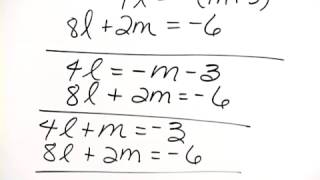 8l + 2m = -6
4l = -m - 3
8l + 2m = -6
4l + m = -3
8l + 2m = -6